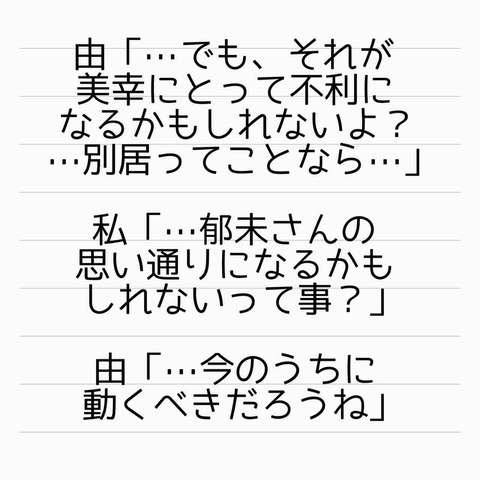 由「…でも、それが
美幸にとって不利に
なるかもしれないよ？
…別居ってことなら…」
私「…郁未さんの
思い通りになるかも
しれないって事？」
由「…今のうちに
動くべきだろうね」